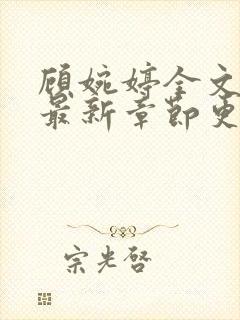 顾婉婷全文
最新章节更
宗光启